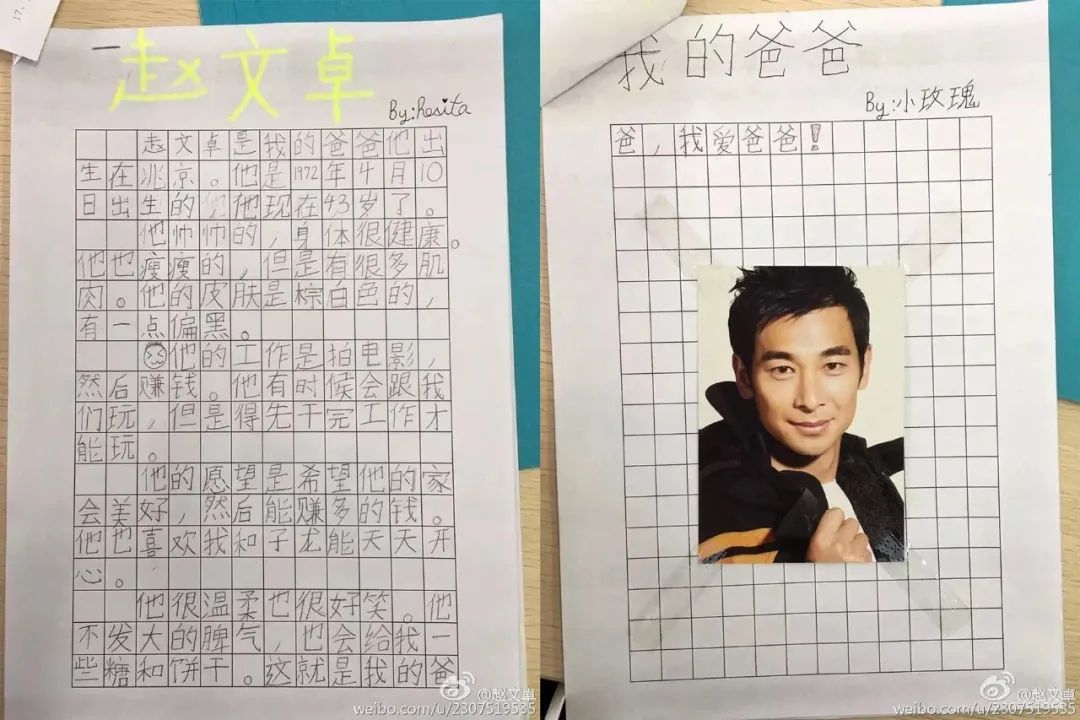 赵文卓
By:hosita
赵文卓是我的爸爸他出
生在兆京。他是1972年4月10
日出生的他他现在43岁了。
他帅帅的，身体很健康。
他也瘦瘦的，但是有很多肌
肉。他的皮肤是棕白色的，
有一点偏黑。
他的工作是拍电影，
然后赚钱。他有时候会跟我
们玩，但是得先干完工作才
能玩。
他的愿望是希望他的家
会美好，然后能赚多的钱。
他也喜欢我和子龙能天天开
心。
他很温柔也很好笑。他
不发大的脾气，也会给我一
些糖和饼干。这就是我的爸
我的爸爸
By:小玫瑰
爸，我爱爸爸！
@赵文卓
weibo.com/u/2307519535
@赵文卓
weibo.com/u/2307519535